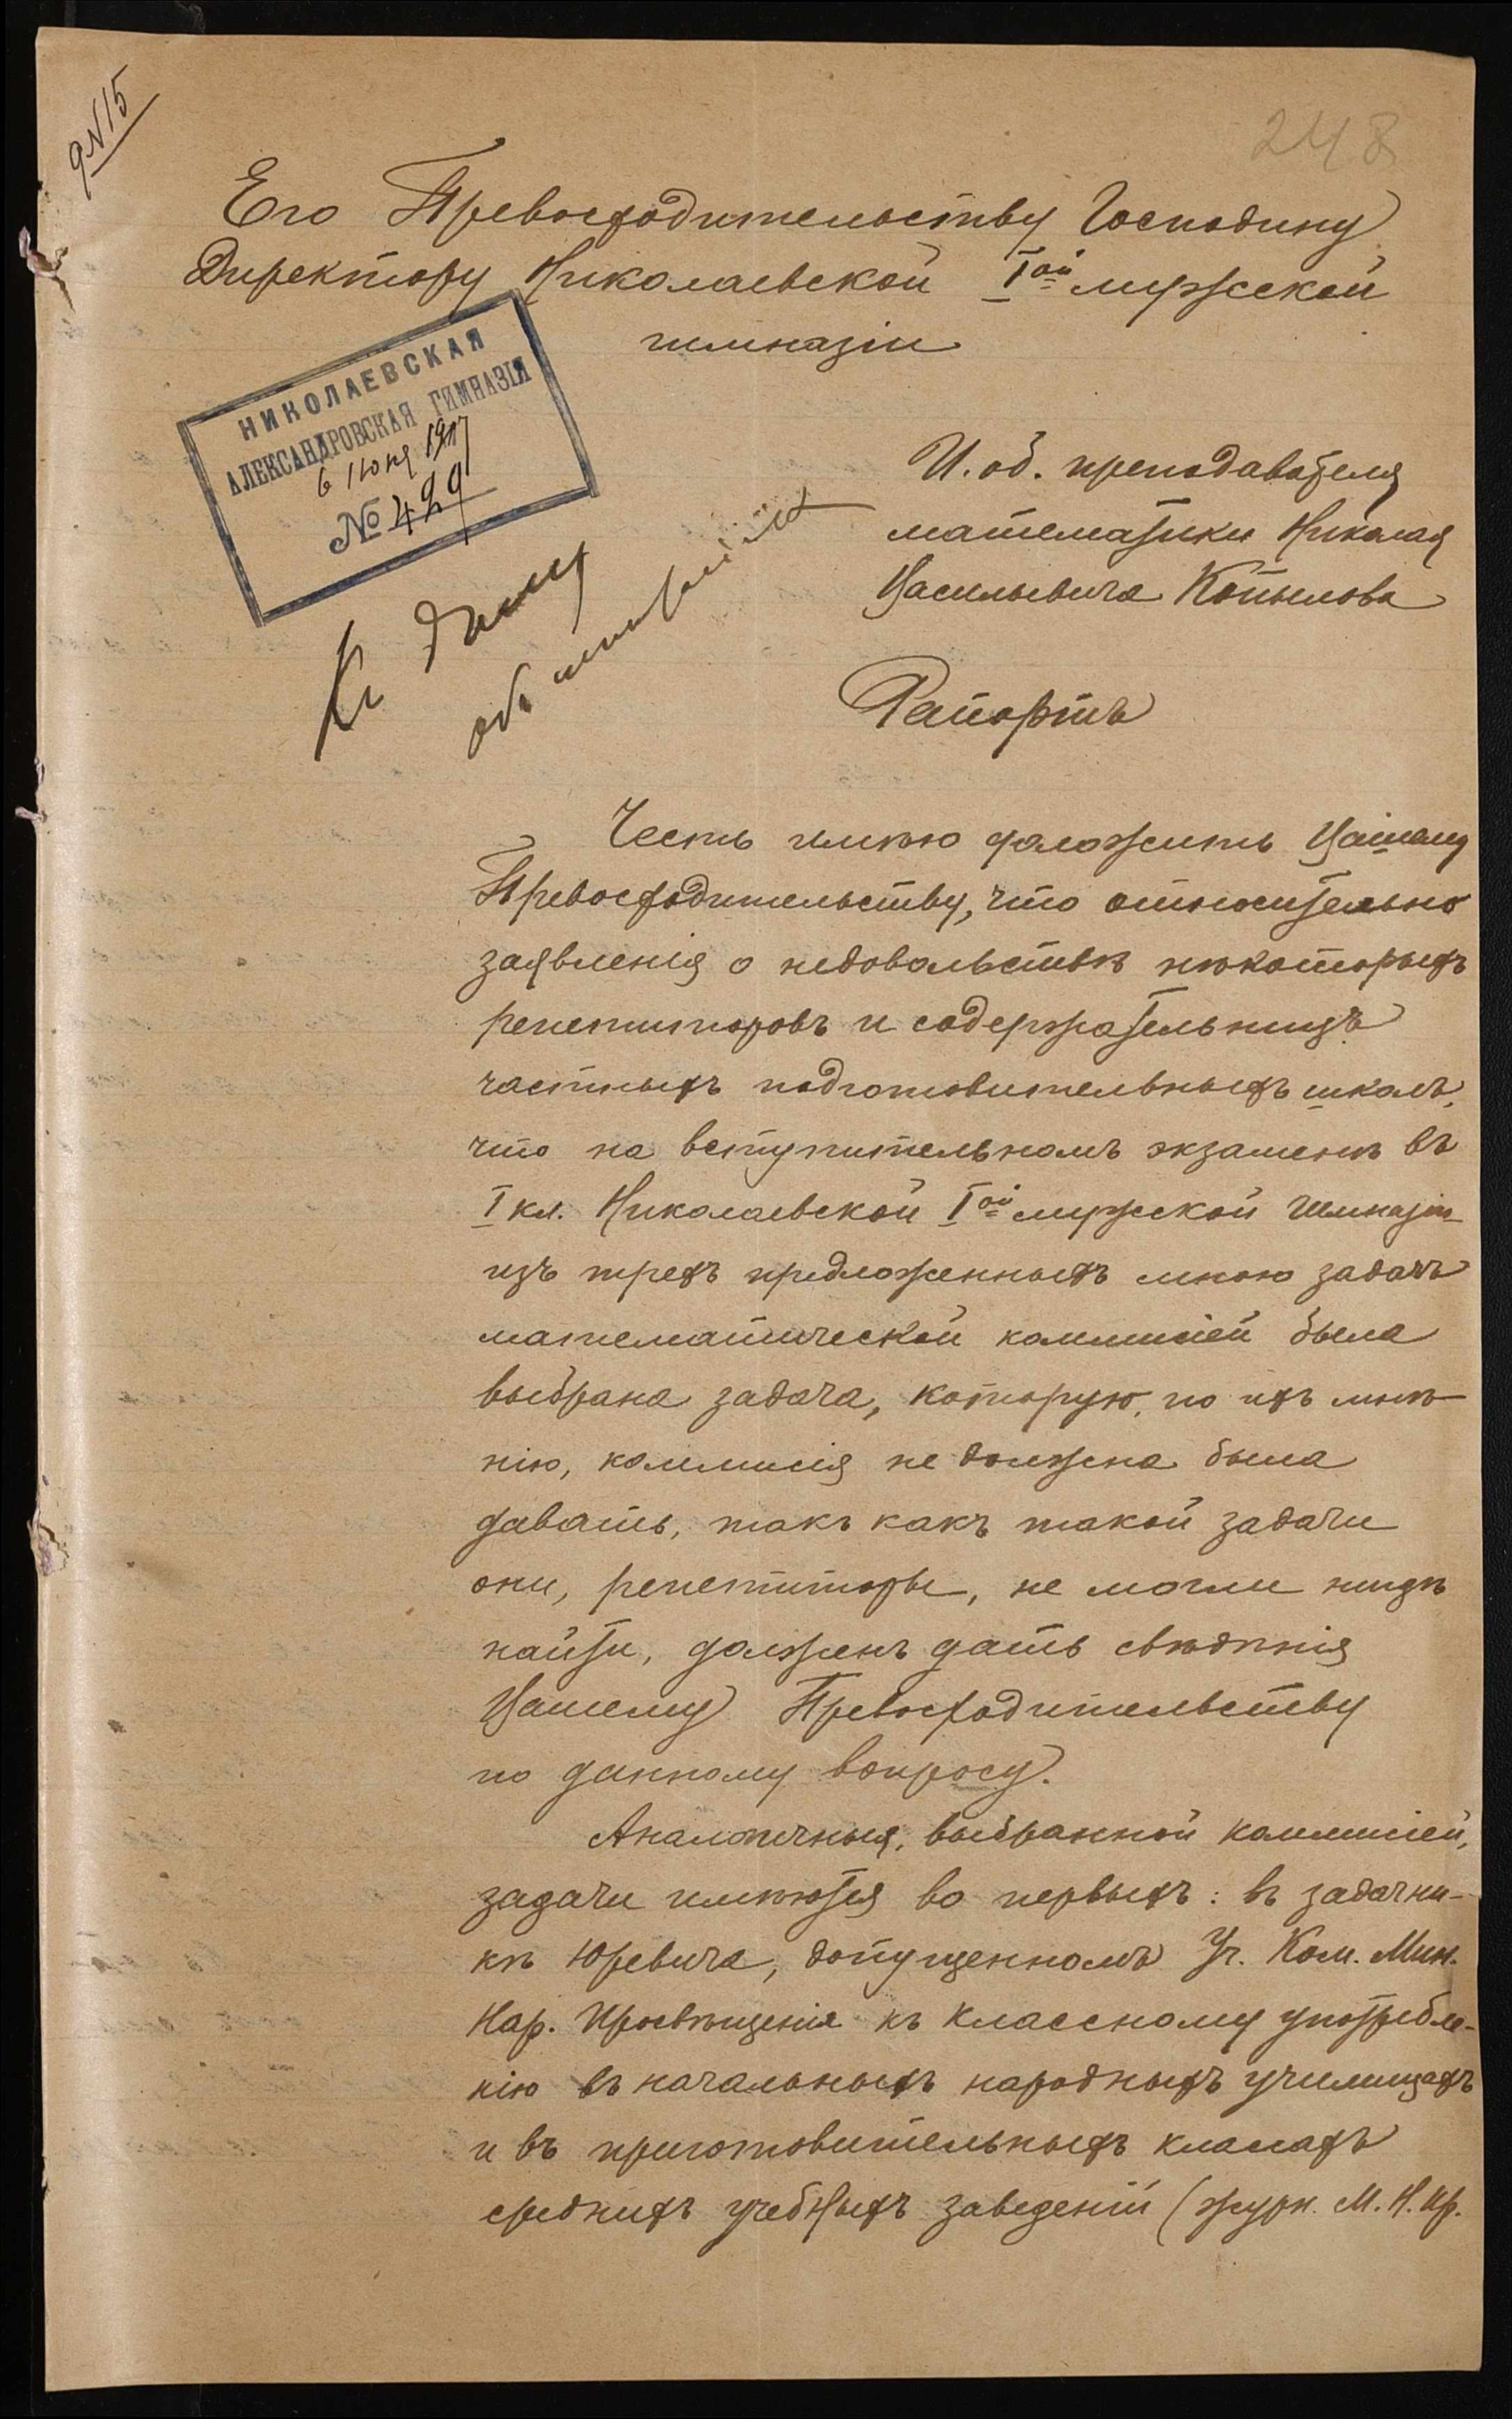 248
Его Превосходительству Господину
Директору Николаевской Iой мужской
гимназіи
НИКОЛАЕВСКАЯ
АЛЕКСАНДРОВСКАЯ ГИМНАЗІЯ
6 Іюня
№ 429
И. об. преподавателя
математики Николая
Васильевича Копылова
Къ дѣлу
объ
Рапортъ
Честь имѣю доложить Вашему
Превосходительству, что относительно
заявленія о недовольствѣ нѣкоторыхъ
репетиторовъ и содержательницъ
частныхъ подготовительныхъ школъ,
что на вступительномъ экзаменѣ въ
I кл. Николаевской Iой мужской Гимназіи
изъ трехъ предложенныхъ мною задачъ
математической коммисіей была
выбрана задача, которую, по ихъ мнѣ-
нію, коммисія не должна была
давать, такъ какъ такой задачи
они, репетиторы, не могли нигдѣ
найти, долженъ дать свѣдѣнія
Вашему Превосходительству
по данному вопросу.
Аналогичныя, выбранной коммисіей,
задачи имѣются во первыхъ: въ задачни-
кѣ Юревича, допущенномъ Уч. Ком. Мин.
Нар. Просвѣщенія къ классному употребле-
нію въ начальныхъ народныхъ училищахъ
и въ приготовительныхъ классахъ
среднихъ учебныхъ заведеній (журн. М. Н. Пр.